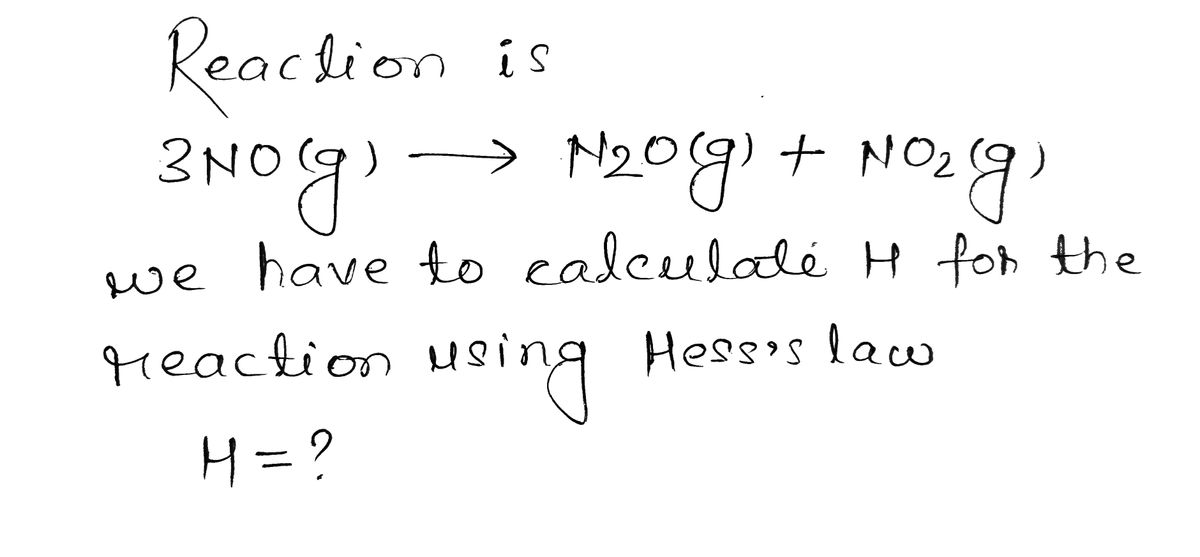 Reaction is
3NO(g) ⟶ N2O(g) + NO2(g)
we have to calculate H for the
reaction using Hess's law
H = ?